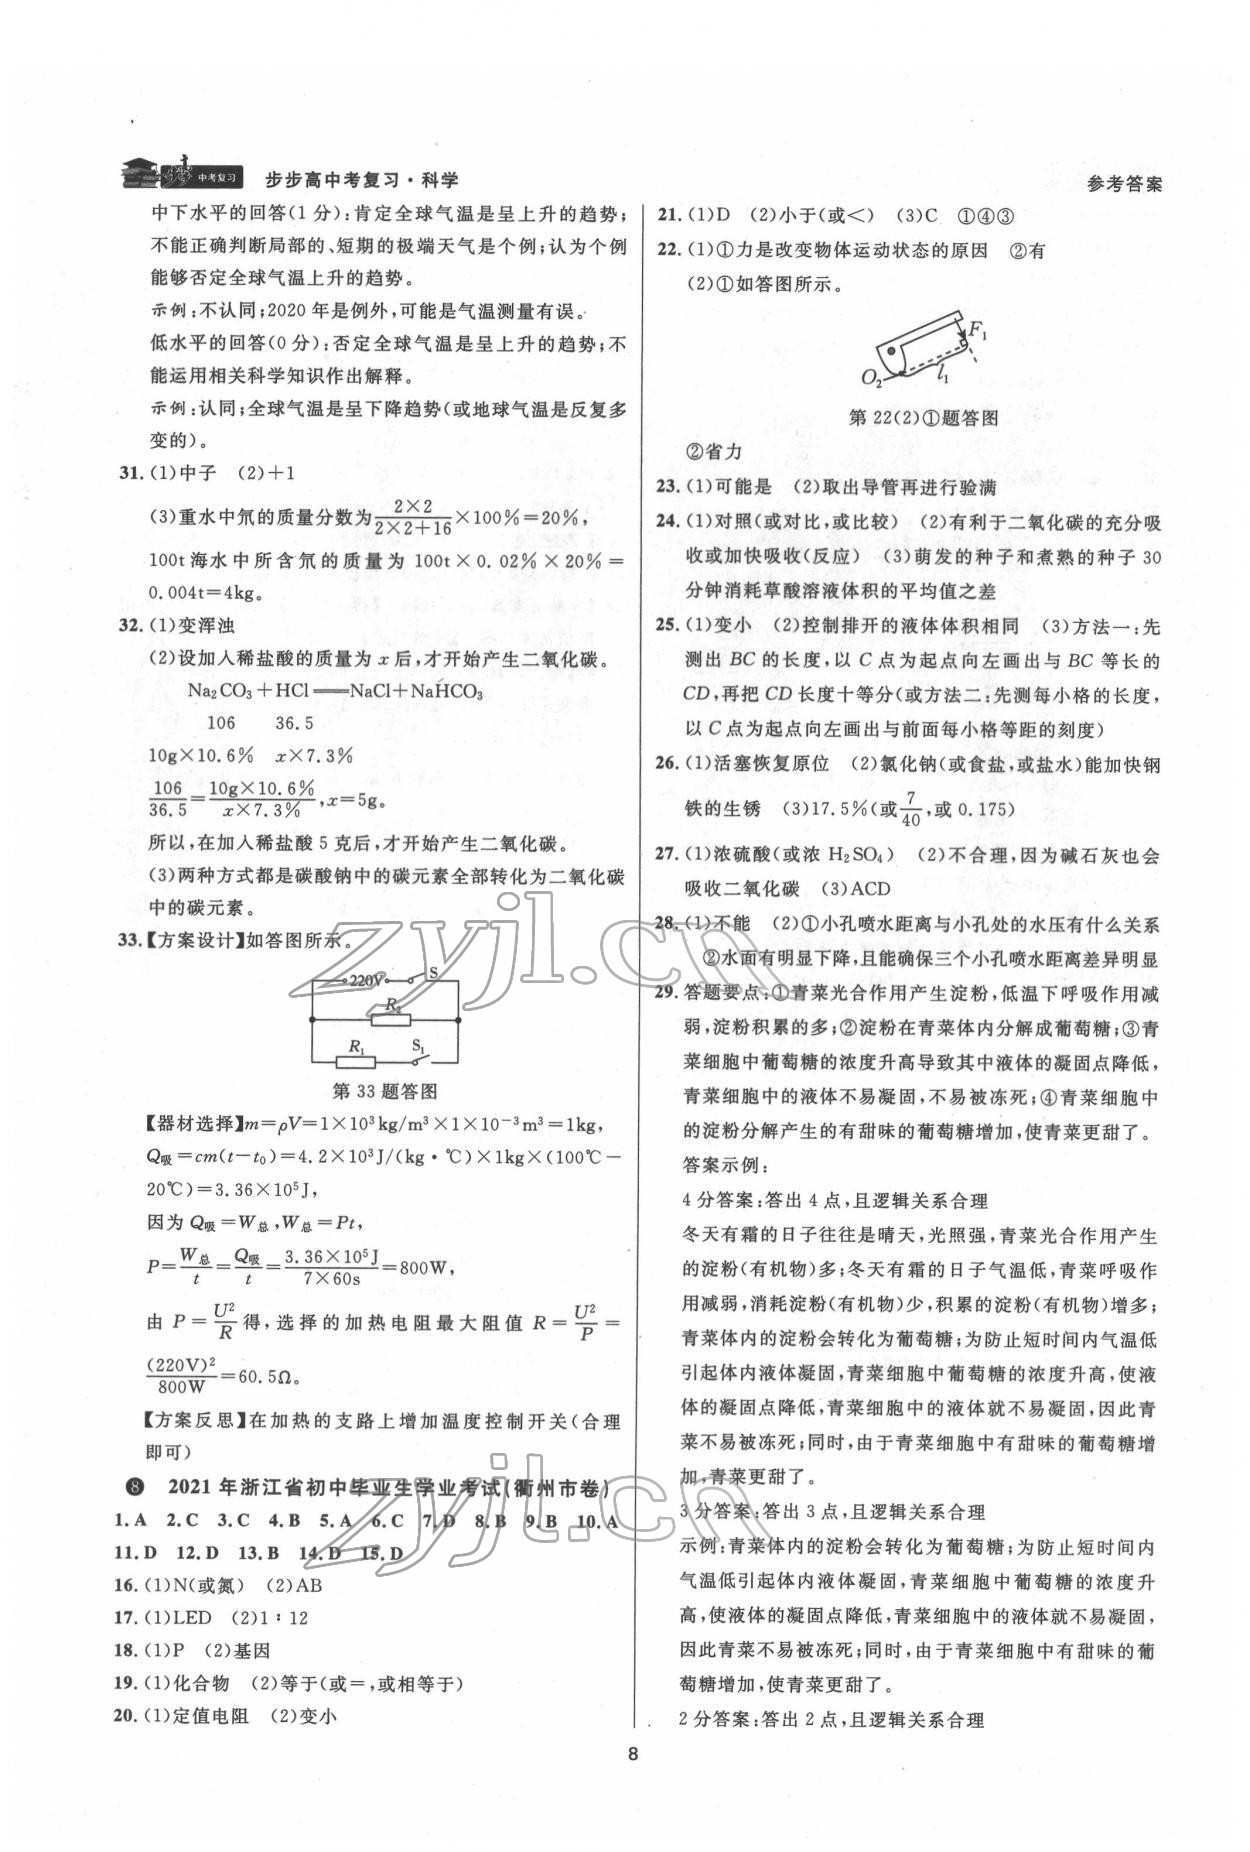 中考复习
步步高中考复习·科学
参考答案
中下水平的回答(1分):肯定全球气温是呈上升的趋势;
不能正确判断局部的、短期的极端天气是个例;认为个例
能够否定全球气温上升的趋势。
示例:不认同;2020年是例外,可能是气温测量有误。
低水平的回答(0分):否定全球气温是呈上升的趋势;不
能运用相关科学知识作出解释。
示例:认同;全球气温是呈下降趋势(或地球气温是反复多
变的)。
31.(1)中子 (2)+1
(3)重水中氘的质量分数为2×2/(2×2+16)×100%=20%,
100t海水中所含氘的质量为100t×0.02%×20%=
0.004t=4kg。
32.(1)变浑浊
(2)设加入稀盐酸的质量为x后,才开始产生二氧化碳。
Na₂CO₃+HCl══NaCl+NaHCO₃
106 36.5
10g×10.6% x×7.3%
106/36.5=10g×10.6%/(x×7.3%),x=5g。
所以,在加入稀盐酸5克后,才开始产生二氧化碳。
(3)两种方式都是碳酸钠中的碳元素全部转化为二氧化碳
中的碳元素。
33.【方案设计】如答图所示。
220V S
R₂
R₁ S₁
第33题答图
【器材选择】m=ρV=1×10³kg/m³×1×10⁻³m³=1kg,
Q吸=cm(t-t₀)=4.2×10³J/(kg·℃)×1kg×(100℃-
20℃)=3.36×10⁵J,
因为Q吸=W总,W总=Pt,
P=W总/t=Q吸/t=3.36×10⁵J/(7×60s)=800W,
由P=U²/R得,选择的加热电阻最大阻值R=U²/P=
(220V)²/800W=60.5Ω。
【方案反思】在加热的支路上增加温度控制开关(合理
即可)
8 2021年浙江省初中毕业生学业考试(衢州市卷)
1.A 2.C 3.C 4.B 5.A 6.C 7.D 8.B 9.B 10.A
11.D 12.D 13.B 14.D 15.D
16.(1)N(或氮) (2)AB
17.(1)LED (2)1∶12
18.(1)P (2)基因
19.(1)化合物 (2)等于(或=,或相等于)
20.(1)定值电阻 (2)变小
21.(1)D (2)小于(或<) (3)C ①④③
22.(1)①力是改变物体运动状态的原因 ②有
(2)①如答图所示。
F₁
O₂ l₁
第22(2)①题答图
②省力
23.(1)可能是 (2)取出导管再进行验满
24.(1)对照(或对比,或比较) (2)有利于二氧化碳的充分吸
收或加快吸收(反应) (3)萌发的种子和煮熟的种子30
分钟消耗草酸溶液体积的平均值之差
25.(1)变小 (2)控制排开的液体体积相同 (3)方法一:先
测出BC的长度,以C点为起点向左画出与BC等长的
CD,再把CD长度十等分(或方法二:先测每小格的长度,
以C点为起点向左画出与前面每小格等距的刻度)
26.(1)活塞恢复原位 (2)氯化钠(或食盐,或盐水)能加快钢
铁的生锈 (3)17.5%(或7/40,或0.175)
27.(1)浓硫酸(或浓H₂SO₄) (2)不合理,因为碱石灰也会
吸收二氧化碳 (3)ACD
28.(1)不能 (2)①小孔喷水距离与小孔处的水压有什么关系
②水面有明显下降,且能确保三个小孔喷水距离差异明显
29.答题要点:①青菜光合作用产生淀粉,低温下呼吸作用减
弱,淀粉积累的多;②淀粉在青菜体内分解成葡萄糖;③青
菜细胞中葡萄糖的浓度升高导致其中液体的凝固点降低,
青菜细胞中的液体不易凝固,不易被冻死;④青菜细胞中
的淀粉分解产生的有甜味的葡萄糖增加,使青菜更甜了。
答案示例:
4分答案:答出4点,且逻辑关系合理
冬天有霜的日子往往是晴天,光照强,青菜光合作用产生
的淀粉(有机物)多;冬天有霜的日子气温低,青菜呼吸作
用减弱,消耗淀粉(有机物)少,积累的淀粉(有机物)增多;
青菜体内的淀粉会转化为葡萄糖;为防止短时间内气温低
引起体内液体凝固,青菜细胞中葡萄糖的浓度升高,使液
体的凝固点降低,青菜细胞中的液体就不易凝固,因此青
菜不易被冻死;同时,由于青菜细胞中有甜味的葡萄糖增
加,青菜更甜了。
3分答案:答出3点,且逻辑关系合理
示例:青菜体内的淀粉会转化为葡萄糖;为防止短时间内
气温低引起体内液体凝固,青菜细胞中葡萄糖的浓度升
高,使液体的凝固点降低,青菜细胞中的液体就不易凝固,
因此青菜不易被冻死;同时,由于青菜细胞中有甜味的葡
萄糖增加,使青菜更甜了。
2分答案:答出2点,且逻辑关系合理
8
zyjl.cn
zyjl.cn